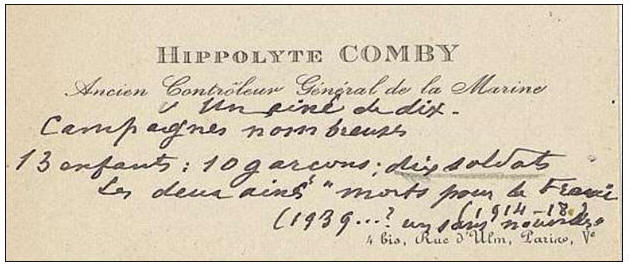 HIPPOLYTE COMBY
Ancien Contrôleur Général de la Marine
Un ainé de dix.
Campagnes nombreuses
13 enfants : 10 garçons ; dix soldats
Les deux ainés "morts pour la France
(1914-18)
(1939...? un sans nouvelles
4 bis, Rue d'Ulm, Paris, Ve